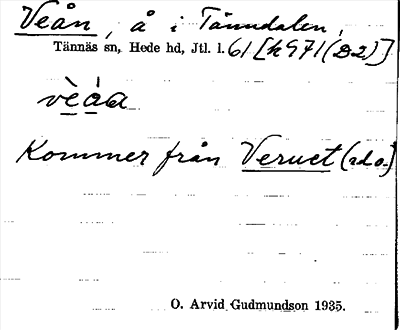 Veån, å i Tänndalen,
Tännäs sn, Hede hd, Jtl. l. 61 [h971(D2)]
vèȧa
Kommer från Veruet (ado.)
O. Arvid Gudmundson 1935.